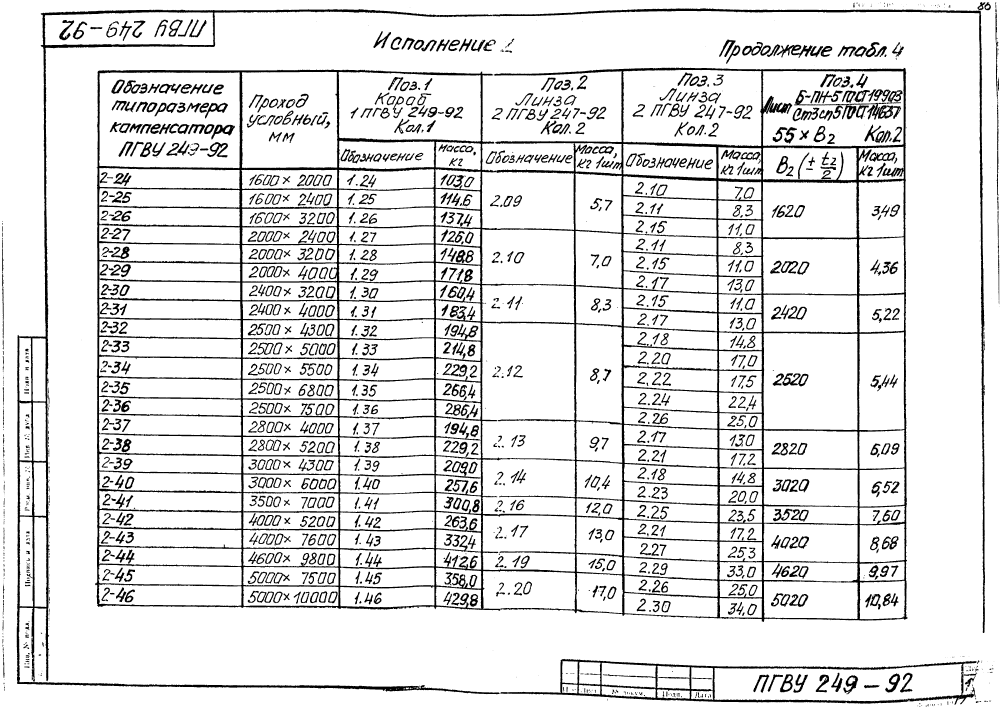 ПГВУ 249-92
80
Исполнение 2
Продолжение табл. 4
Обозначение типоразмера компенсатора ПГВУ 249-92
Проход условный, мм
Поз. 1 Короб 1 ПГВУ 249-92 Кол. 1
Поз. 2 Линза 2 ПГВУ 247-92 Кол. 2
Поз. 3 Линза 2 ПГВУ 247-92 Кол. 2
Поз. 4 Лист Б-ПН-5 ГОСТ 19903 Ст3сп5 ГОСТ 14637 55 × B₂ Кол. 2
Обозначение Масса, кг Обозначение Масса, кг 1 шт Обозначение Масса, кг 1 шт B₂ (± t₂/2) Масса, кг 1 шт
2-24 1600 × 2000 1.24 103,0 2.09 5,7 2.10 7,0 1620 3,49
2-25 1600 × 2400 1.25 114,6 2.11 8,3
2-26 1600 × 3200 1.26 137,4 2.15 11,0
2-27 2000 × 2400 1.27 126,0 2.10 7,0 2.11 8,3 2020 4,36
2-28 2000 × 3200 1.28 148,8 2.15 11,0
2-29 2000 × 4000 1.29 171,8 2.17 13,0
2-30 2400 × 3200 1.30 160,4 2.11 8,3 2.15 11,0 2420 5,22
2-31 2400 × 4000 1.31 183,4 2.17 13,0
2-32 2500 × 4300 1.32 194,8 2.12 8,7 2.18 14,8 2520 5,44
2-33 2500 × 5000 1.33 214,8 2.20 17,0
2-34 2500 × 5500 1.34 229,2 2.22 17,5
2-35 2500 × 6800 1.35 266,4 2.24 22,4
2-36 2500 × 7500 1.36 286,4 2.26 25,0
2-37 2800 × 4000 1.37 194,8 2.13 9,7 2.17 13,0 2820 6,09
2-38 2800 × 5200 1.38 229,2 2.21 17,2
2-39 3000 × 4300 1.39 209,0 2.14 10,4 2.18 14,8 3020 6,52
2-40 3000 × 6000 1.40 257,6 2.23 20,0
2-41 3500 × 7000 1.41 300,8 2.16 12,0 2.25 23,5 3520 7,60
2-42 4000 × 5200 1.42 263,6 2.17 13,0 2.21 17,2 4020 8,68
2-43 4000 × 7600 1.43 332,4 2.27 25,3
2-44 4600 × 9800 1.44 412,6 2.19 15,0 2.29 33,0 4620 9,97
2-45 5000 × 7500 1.45 358,0 2.20 17,0 2.26 25,0 5020 10,84
2-46 5000 × 10000 1.46 429,8 2.30 34,0
Подп. и дата
Подпись и дата
Инв. № подл.
№ докум. Подп. Дата
ПГВУ 249-92